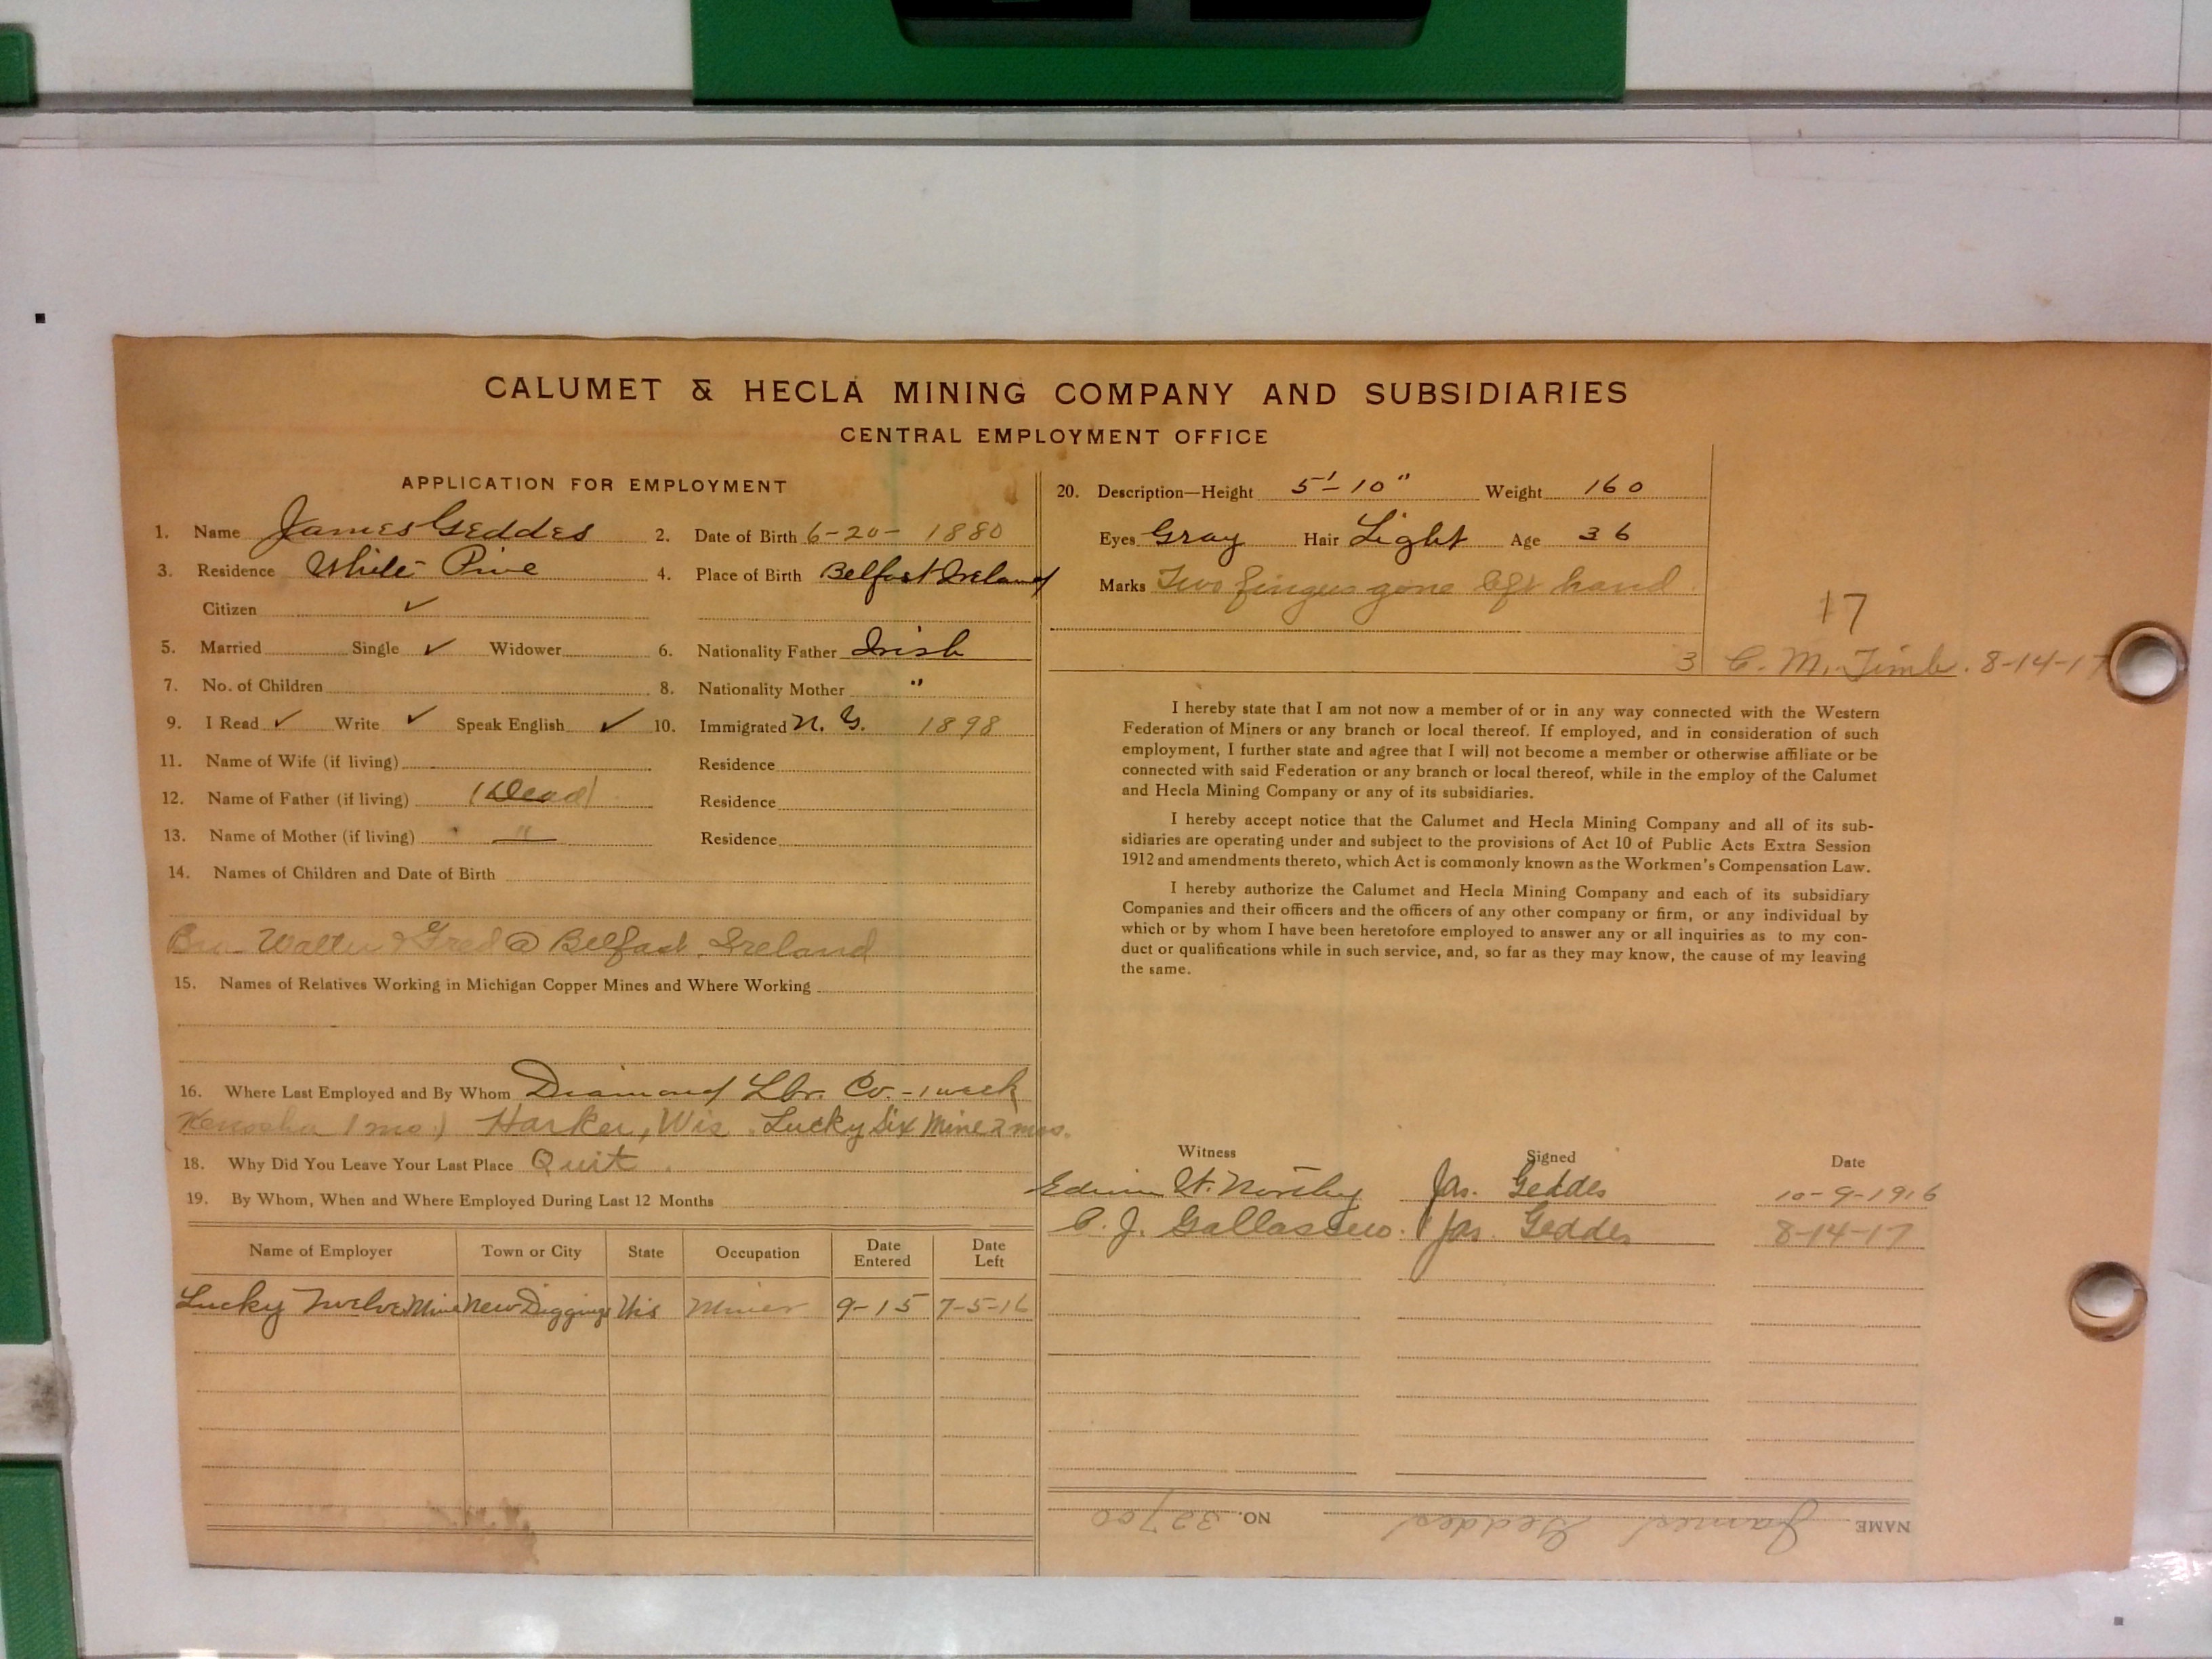 CALUMET & HECLA MINING COMPANY AND SUBSIDIARIES
CENTRAL EMPLOYMENT OFFICE
APPLICATION FOR EMPLOYMENT
1. Name James Geddes 2. Date of Birth 6-20-1880
3. Residence White Pine 4. Place of Birth Belfast Ireland
Citizen ✓
5. Married Single ✓ Widower 6. Nationality Father Irish
7. No. of Children 8. Nationality Mother "
9. I Read ✓ Write ✓ Speak English ✓ 10. Immigrated N. Y. 1898
11. Name of Wife (if living) Residence
12. Name of Father (if living) (Dead) Residence
13. Name of Mother (if living) " Residence
14. Names of Children and Date of Birth
Bro- Walter & Fred @ Belfast, Ireland
15. Names of Relatives Working in Michigan Copper Mines and Where Working
16. Where Last Employed and By Whom Diamond Lbr. Co. - 1 week
Kenosha 1 mo.) Harker, Wis. Lucky Six Mine 2 mos.
18. Why Did You Leave Your Last Place Quit.
19. By Whom, When and Where Employed During Last 12 Months
Name of Employer Town or City State Occupation Date Entered Date Left
Lucky Twelve Mine New Diggings Wis Miner 9-15 7-5-16
20. Description—Height 5'-10" Weight 160
Eyes Gray Hair Light Age 36
Marks Two fingers gone left hand.
17
3 C. M. Timb. 8-14-17
I hereby state that I am not now a member of or in any way connected with the Western
Federation of Miners or any branch or local thereof. If employed, and in consideration of such
employment, I further state and agree that I will not become a member or otherwise affiliate or be
connected with said Federation or any branch or local thereof, while in the employ of the Calumet
and Hecla Mining Company or any of its subsidiaries.
I hereby accept notice that the Calumet and Hecla Mining Company and all of its sub-
sidiaries are operating under and subject to the provisions of Act 10 of Public Acts Extra Session
1912 and amendments thereto, which Act is commonly known as the Workmen's Compensation Law.
I hereby authorize the Calumet and Hecla Mining Company and each of its subsidiary
Companies and their officers and the officers of any other company or firm, or any individual by
which or by whom I have been heretofore employed to answer any or all inquiries as to my con-
duct or qualifications while in such service, and, so far as they may know, the cause of my leaving
the same.
Witness Signed Date
Edwin H. Northey Jas. Geddes 10-9-1916
C. J. Jas. Geddes 8-14-17
NAME James Geddes NO. 32700